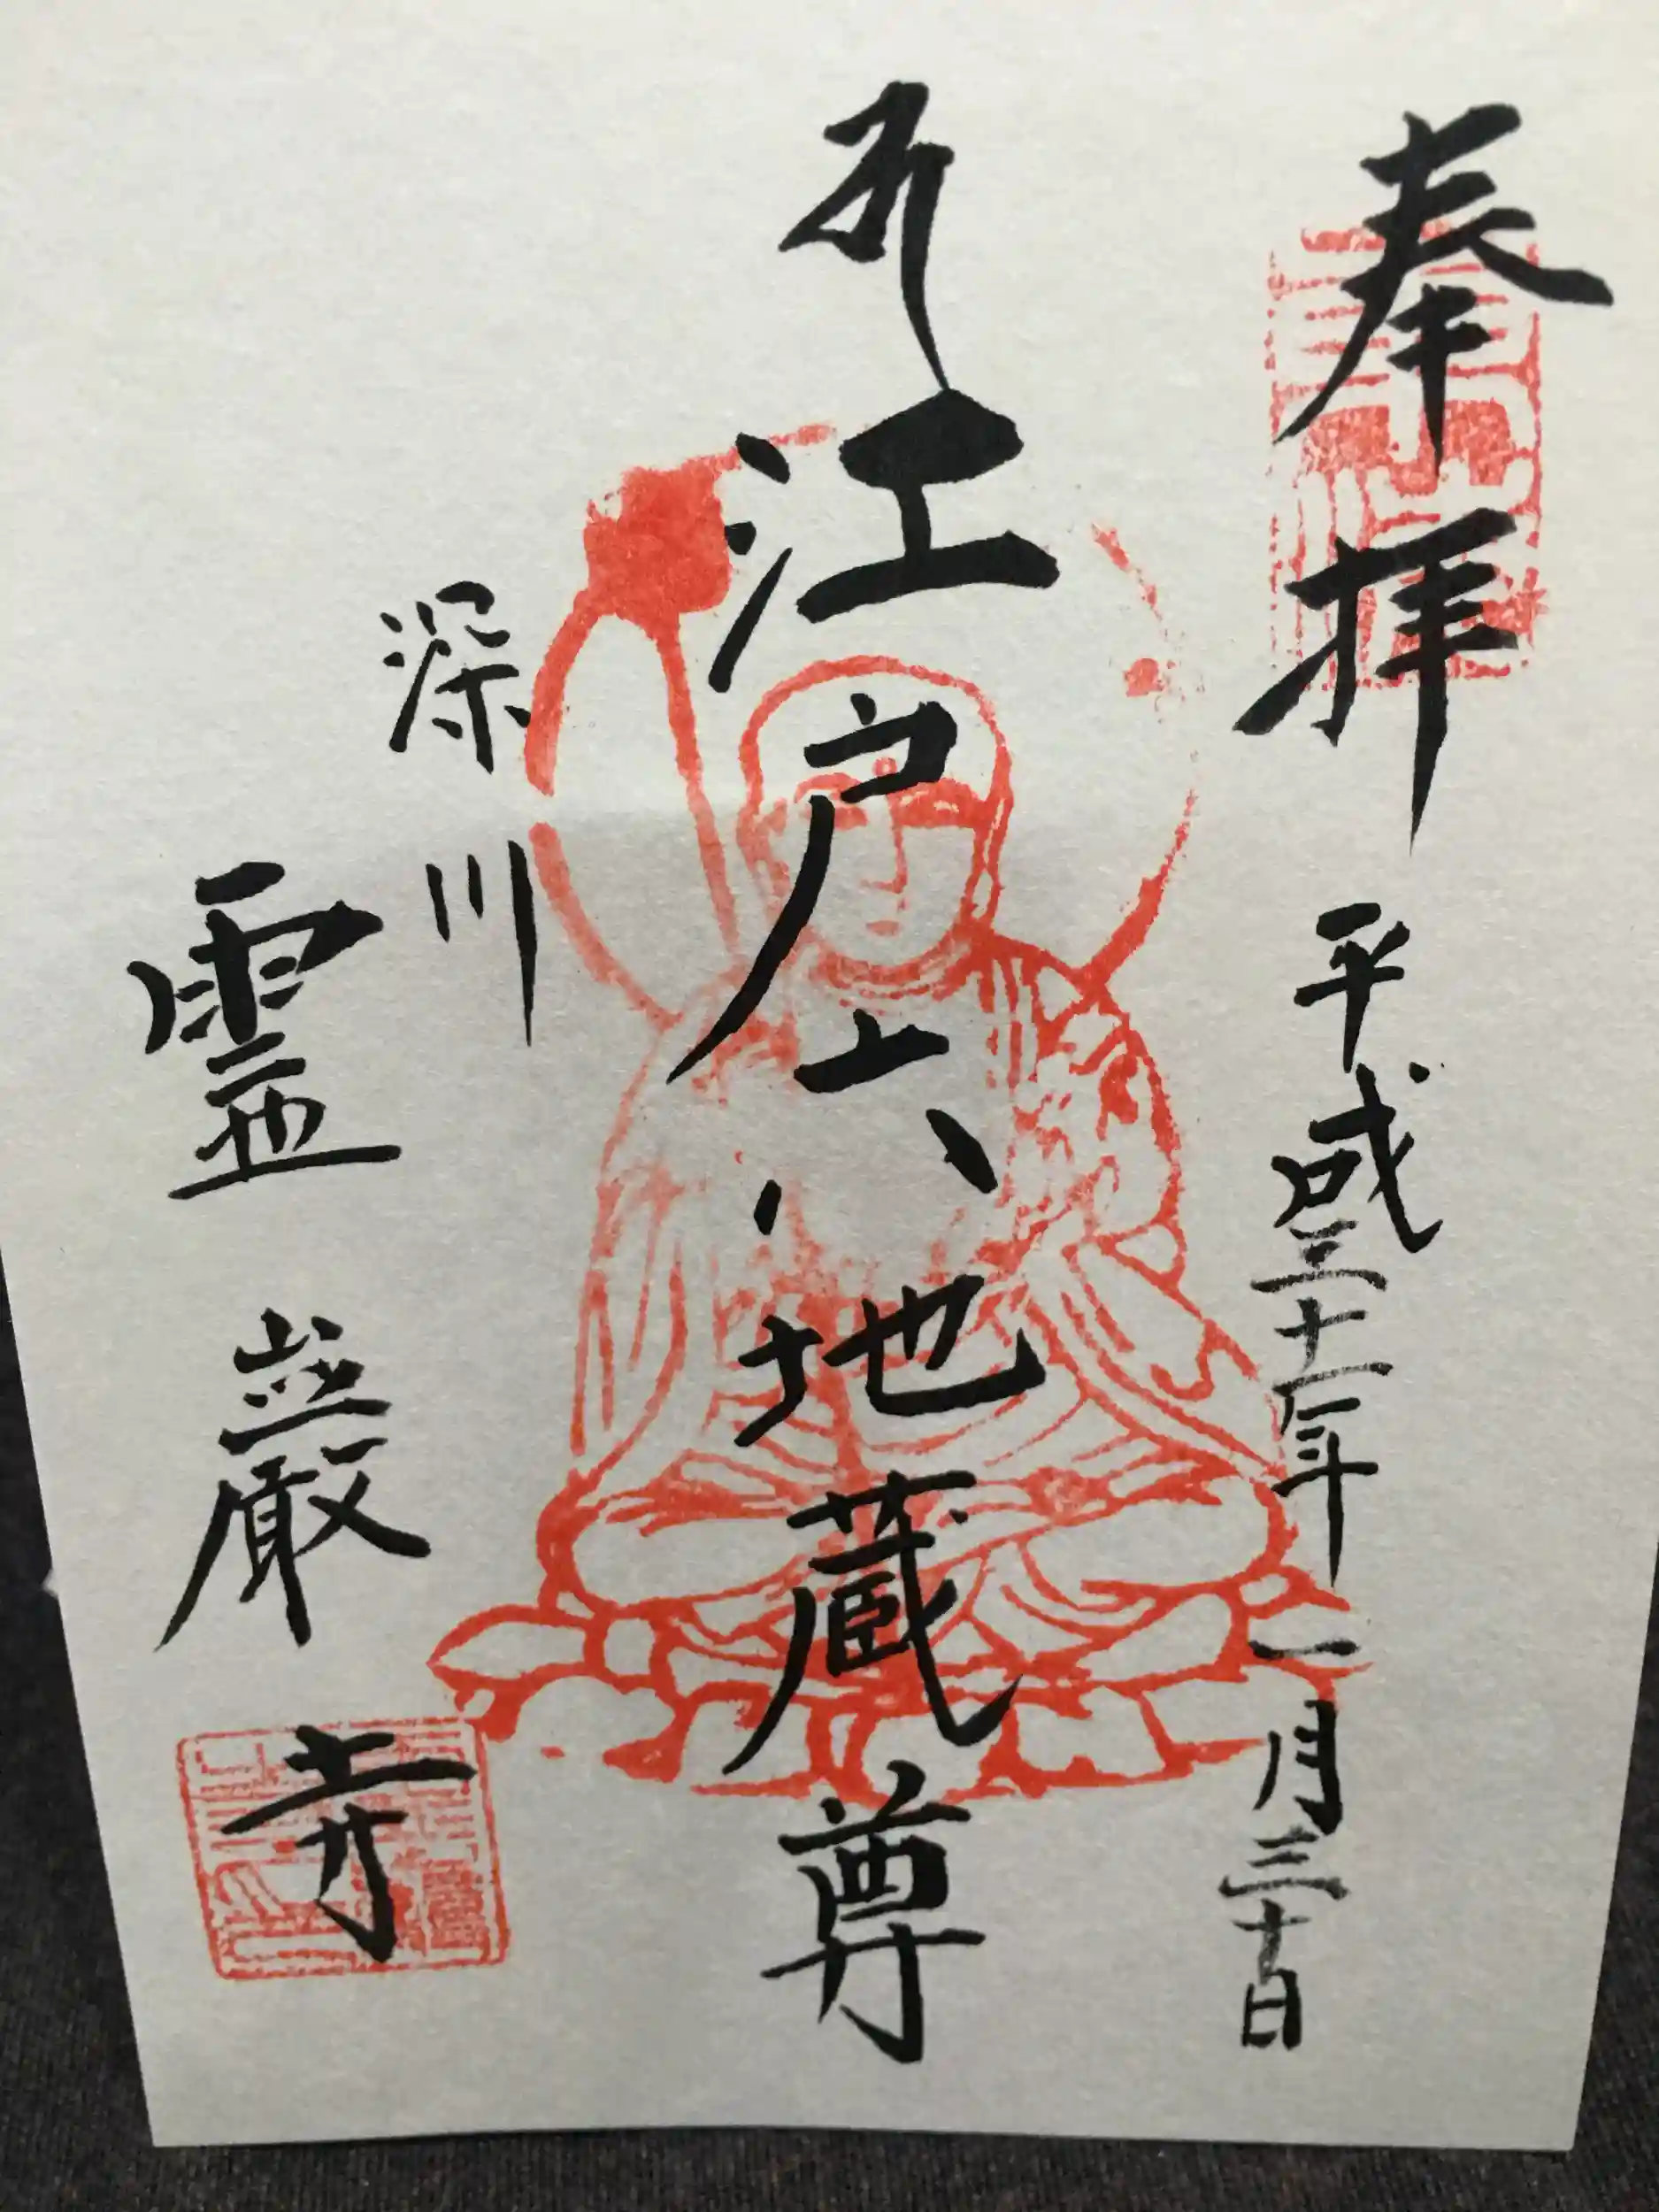 奉拝 平成三十一年一月三十日
江戸六地蔵尊
深川
霊巌寺